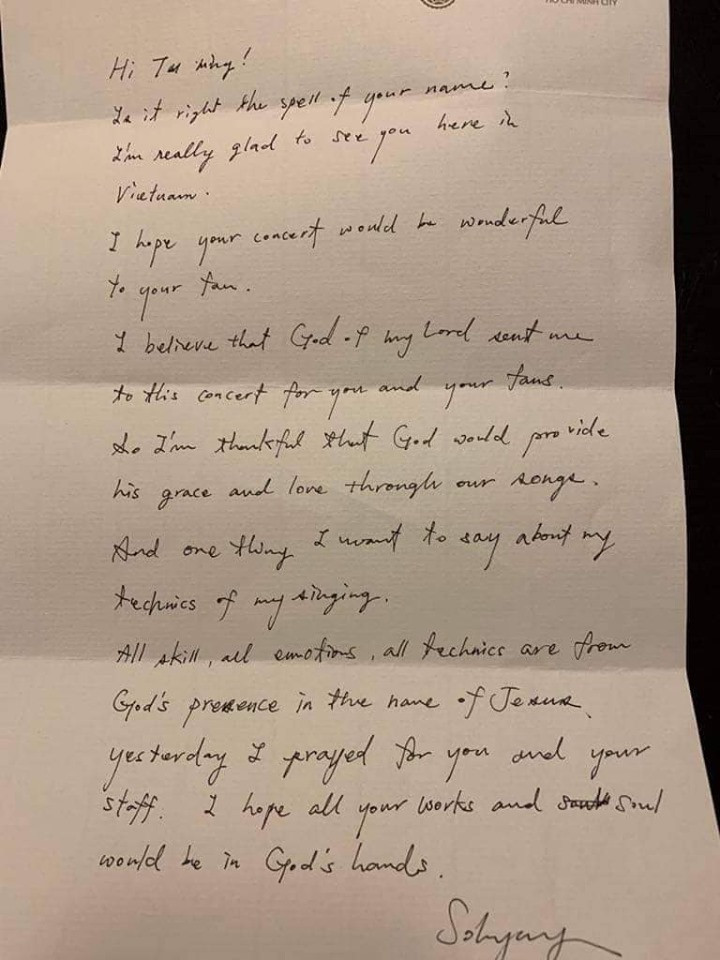 HO CHI MINH CITY
Hi Tas ming!
Is it right the spell of your name?
I'm really glad to see you here in
Vietnam.
I hope your concert would be wonderful
to your fan.
I believe that God of my Lord sent me
to this concert for you and your fans.
So I'm thankful that God would provide
his grace and love through our songs.
And one thing I want to say about my
technics of my singing.
All skill, all emotions, all technics are from
God's presence in the name of Jesus.
yesterday I prayed for you and your
staff. I hope all your works and soul
would be in God's hands.
Sohyang